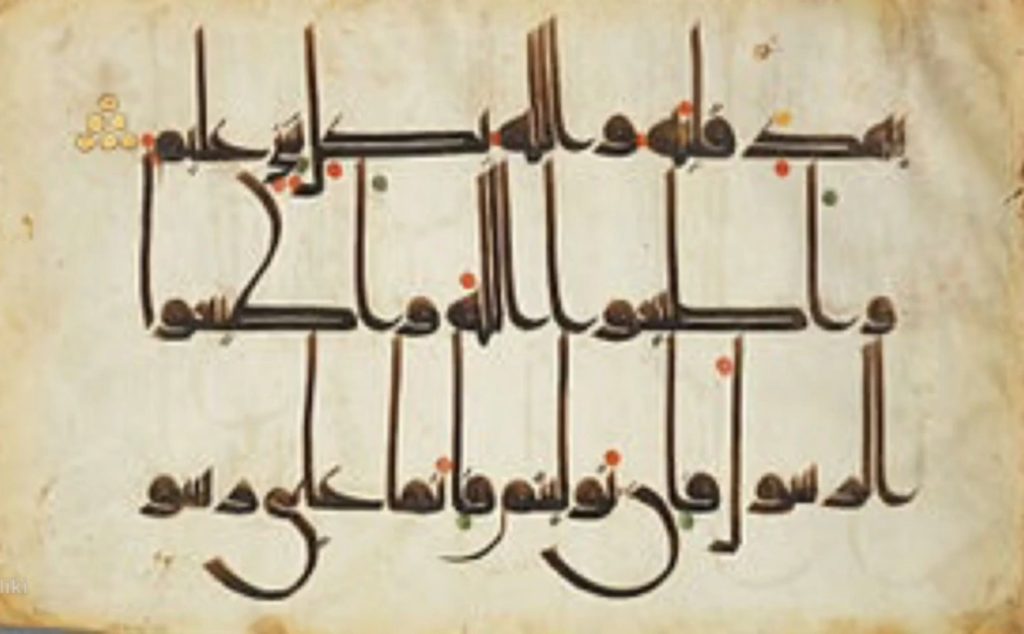 يهد قلبه والله بكل شى عليم
واطيعوا الله واطيعوا
الرسول فان توليتم فانما على رسو
liki